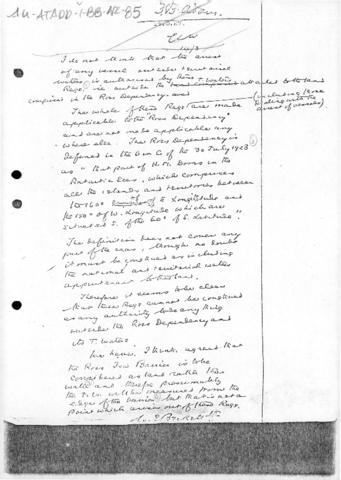 AU-ATADD-1-BB-AC-85
I do not think that the arrest
of any vessel outside territorial
waters is authorised by these T. Waters
Regs. i.e. outside the attached to the land
comprised in the Ross Dependency and
The whole of these Regs are made (including those
applicable to the "Ross Dependency" dealing with the
and are not made applicable any arrest of vessels)
where else. The Ross Dependency is
defined in the Order in C of the 30 July 1923
as "that part of H.M. Doms in the
Antarctic Seas, which comprises
all the islands and territories between
the 160° of E Longitude and
the 150° of W. Longitude which are
situated S. of the 60° of S. Latitude".
The definition does not cover any
part of the seas, though no doubt
it must be construed as including
the national and territorial waters
appurtenant to the land.
Therefore it seems to be clear
that these Regs cannot be construed
as any authority to do anything
outside the Ross Dependency and
its T. waters.
We have, I think, agreed that
the Ross Ice Barrier is to be
considered as land rather than
water and therefore presumably
the T.W. will be measured from the
edge of the barrier but that is not a
point which arises out of these Regs.